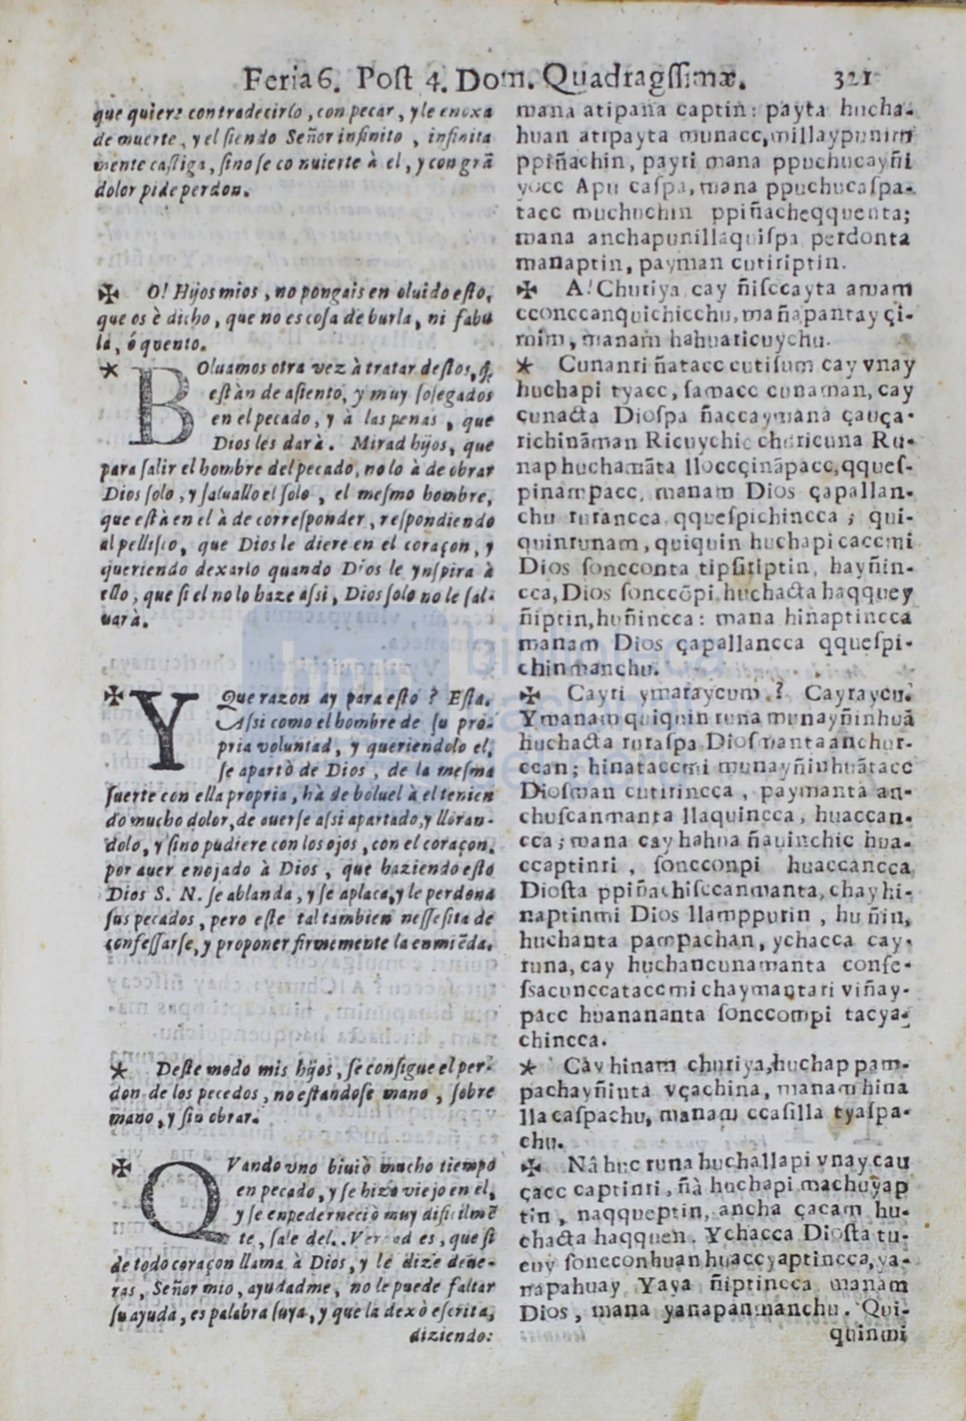 Feria 6. Post 4. Dom. Quadragssimæ. 321
que quiere contradecirlo, con pecar, y le enoxa
de muerte, y el siendo Señor infinito, infinita
mente castiga, sino se co nuierte à el, y con grã
dolor pide perdon.
✠ O! Hijos mios, no pongais en oluido esto,
que os è dicho, que no es cosa de burla, ni fabu
la, ó quento.
* Boluamos otra vez à tratar destos, q̃
estàn de asiento, y muy sosegados
en el pecado, y à las penas, que
Dios les darà. Mirad hijos, que
para salir el hombre del pecado, no lo à de obrar
Dios solo, y saluallo el solo, el mesmo hombre,
que està en el à de corresponder, respondiendo
al pellisco, que Dios le diere en el coraçon, y
queriendo dexarlo quando Dios le ynspira à
ello, que si el no lo haze assi, Dios solo no le sal-
uarà.
✠ Y Que razon ay para esto? Esta.
Assi como el hombre de su pro-
pria voluntad, y queriendolo el,
se apartò de Dios, de la mesma
suerte con ella propria, hà de boluel à el tenien
do mucho dolor, de auerse assi apartado, y lloran-
dolo, y sino pudiere con los ojos, con el coraçon,
por auer enojado à Dios, que haziendo esto
Dios S. N. se ablanda, y se aplaca, y le perdona
sus pecados, pero este tal tambien nessesita de
confessarse, y proponer firmemente la enmiẽda.
* Deste modo mis hijos, se consigue el per-
don de los pecedos, no estandose mano, sobre
mano, y sin obrar.
✠ QVando vno biuiò mucho tiempo
en pecado, y se hizo viejo en el,
y se enpederneciò muy dificilmẽ
te, sale del. Verdad es, que si
de todo coraçon llama à Dios, y le dize dene-
ras, Señor mio, ayudadme, no le puede faltar
su ayuda, es palabra suya, y que la dexò escrita,
diziendo:
mana atipana captin: payta hucha-
huan atipayta munacc, millaypunim
ppiñachin, payri mana ppuchucayñi
yocc Apu caspa, mana ppuchucaspa-
tacc muchuchin ppiñacheqquenta;
mana anchapunillaquispa perdonta
manaptin, payman cutiriptin.
✠ A! Churiya cay ñisccayta amam
cconccanquichicchu, maña pantay çi-
mim, manam hahuaricuychu.
* Cunanri ñatacc cutisum cay vnay
huchapi tyacc, samacc cunaman, cay
cunacta Diospa ñaccaymana çauça-
richinãman Ricuychic churicuna Ru-
nap huchamãta lloccçinãpacc, qques-
pinampacc, manam Dios çapallan-
chu rurancca qquespichincca; qui-
quinrunam, quiquin huchapi caccmi
Dios soncconta tipsiriptin, hayñin-
cca, Dios sonccõpi huchacta haqquey
ñiptin, huñincca: mana hinaptincca
manam Dios çapallancca qquespi-
chinmanchu.
✠ Cayri ymaraycum? Cayraycu.
Ymanam quiquin runa munayñinhuã
huchacta ruraspa Diosmanta anchur-
ccan; hinataccmi munayñinhuãtacc
Diosman cutirincca, paymanta an-
chuscanmanta llaquincca, huaccan-
cca; mana cay hahua ñauinchic hua-
ccaptinri, sonccompi huaccancca
Diosta ppiñachisccanmanta, chay hi-
naptinmi Dios llampputin, huñin,
huchanta pampachan, ychacca cay-
runa, cay huchancunamanta confe-
ssacunccataccmi chaymantari viñay-
pacc huanananta sonccompi tacya-
chincca.
* Cay hinam churiya, huchap pam-
pachayñinta vçachina, manam hina
lla caspachu, manam ccasilla tyaspa-
chu.
✠ Ñà huc runa huchallapi vnay cau
çacc captinri, ñà huchapi machuyap
tin, naqqueptin, ancha çaçam hu-
chacta haqquen. Ychacca Diosta tu-
cuy soncconhuan huaccyaptincca, ya-
napahuay Yaya ñiptincca manam
Dios, mana yanapanmanchu. Qui-
quinmi